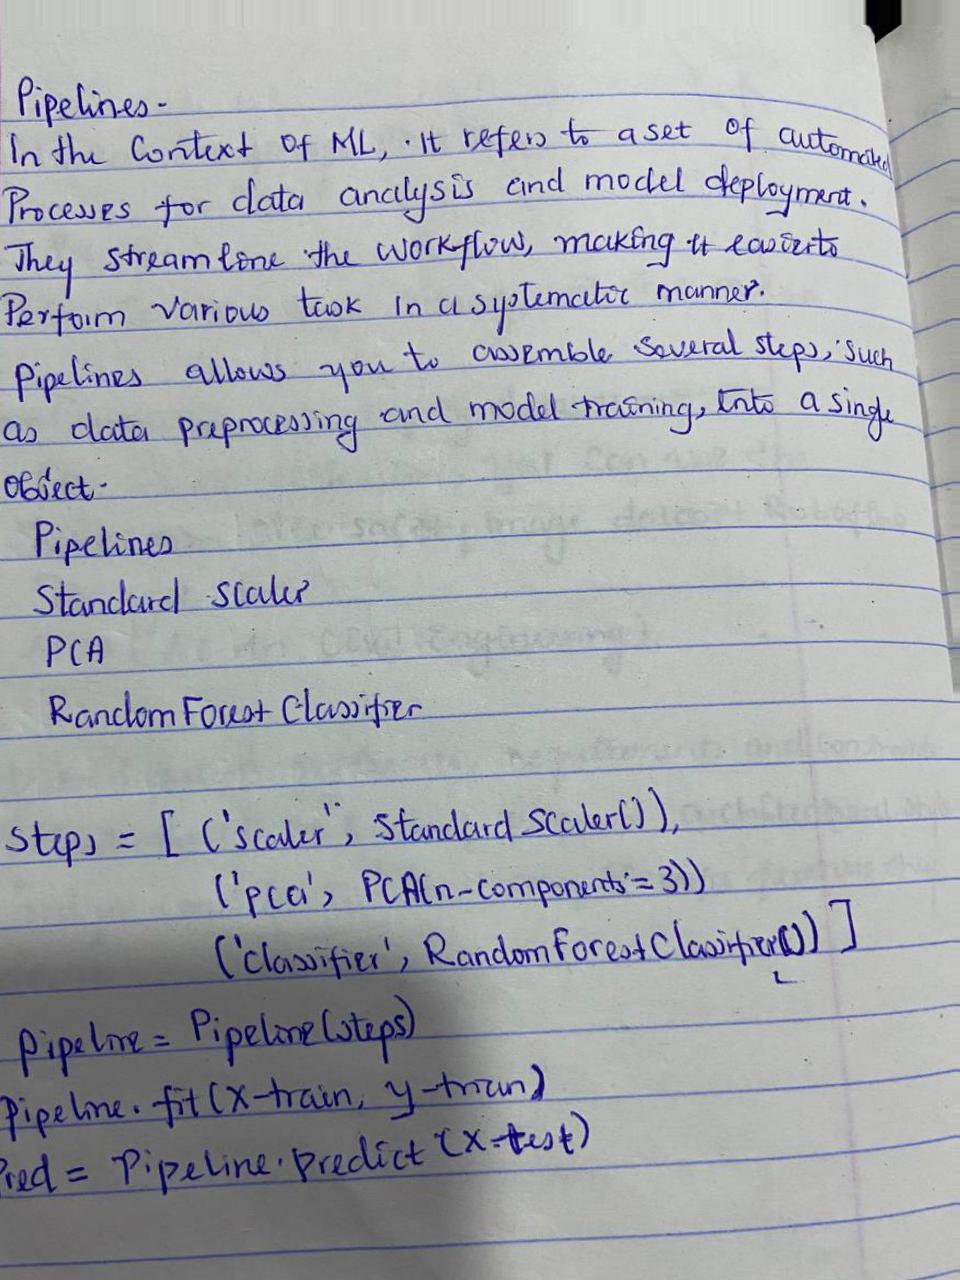 Pipelines -
In the Context Of ML, . It refers to a set Of automated
Processes for data analysis and model deployment.
They streamline the Workflow, making it easier to
Perform Various task In a systematic manner.
Pipelines allows you to assemble Several steps, such
as data preprocessing and model training, Into a single
Object.
Pipelines
Standard Scaler
PCA
RandomForest Classifier
Steps = [ ('scaler', Standard Scaler()),
('pca', PCA(n-components=3))
('classifier', RandomForestClassifier()) ]
Pipeline = Pipeline(steps)
Pipeline.fit(X-train, y-train)
Pred = Pipeline.predict(X-test)